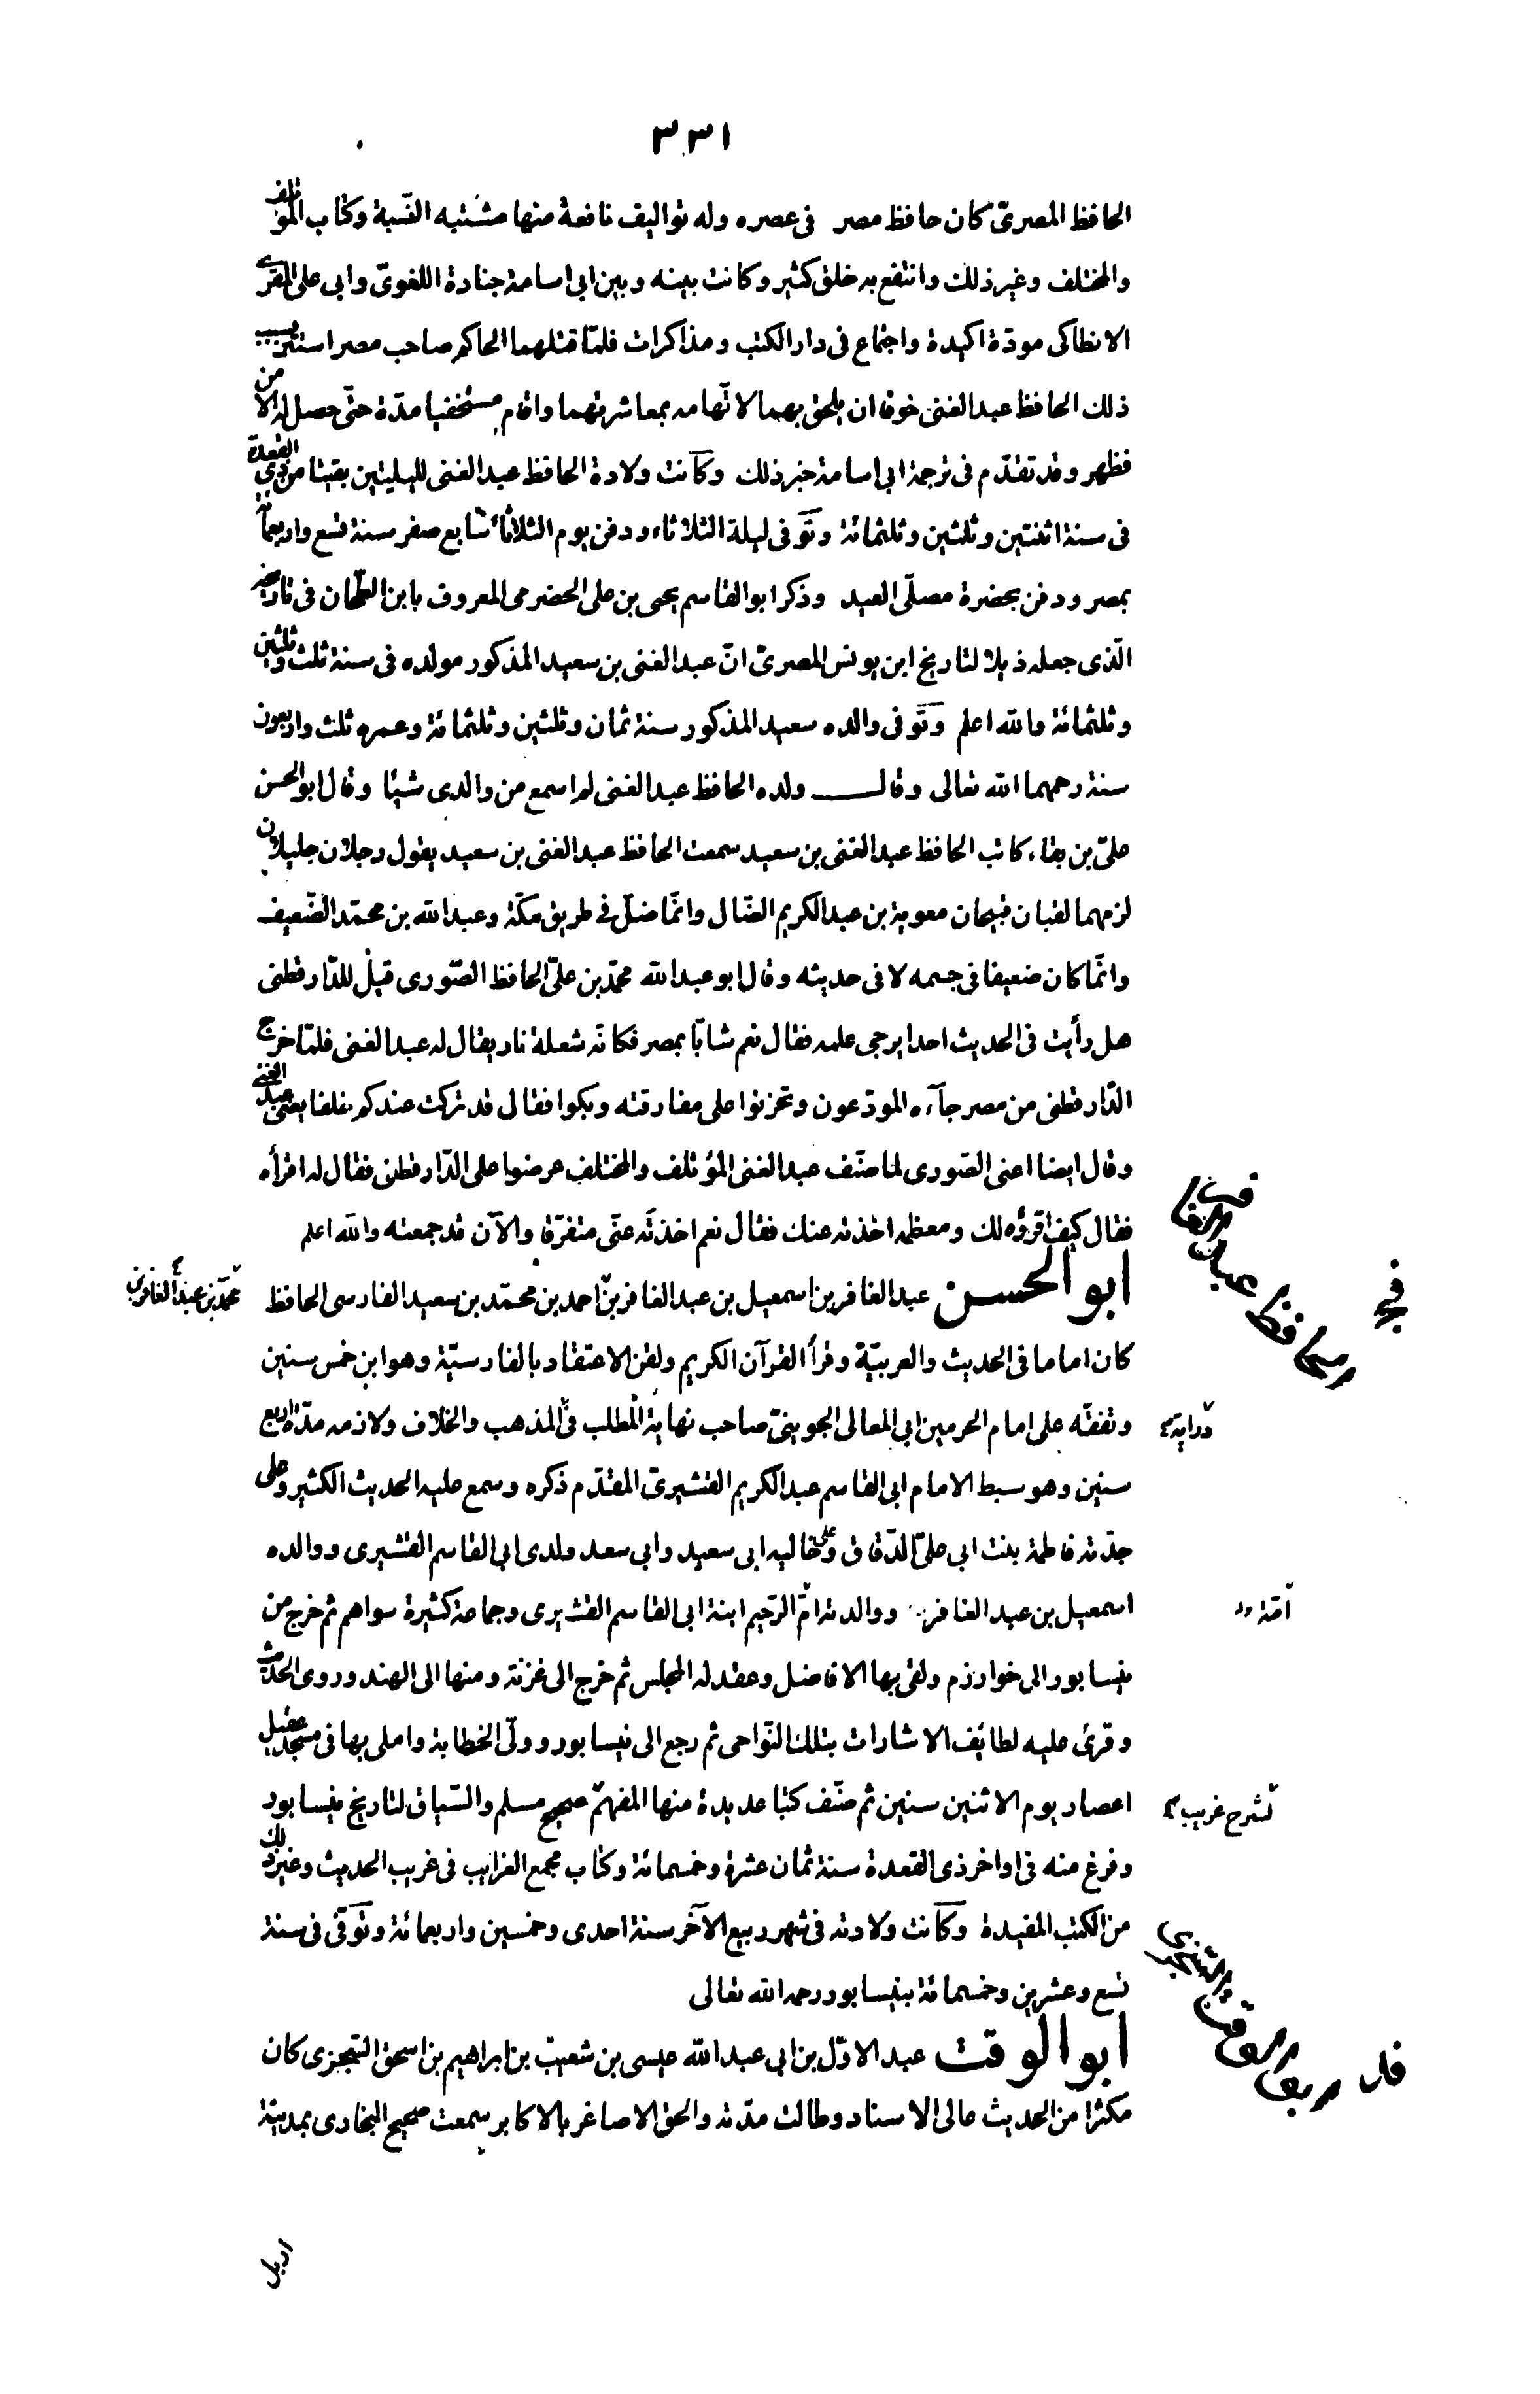 ٣٣١
الحافظ المصرىّ كان حافظ مصر فى عصره وله تواليف نافعة منها مشتبه النّسبة وكتاب المؤتلف
والمختلف وغير ذلك وانتفع به خلق كثير وكانت بينه وبين ابى اسامة جنادة اللغوىّ وابى على المقرى
الانطاكى مودّة اكيدة واجتماع فى دار الكتب ومذاكرات فلمّا قتلهما الحاكم صاحب مصر استتر بسبب
ذلك الحافظ عبد الغنى خوفا ان يلحق بهما لاتّهامه بمعاشرتهما واقام مستخفيا مدّة حتّى حصل له الامن
فظهر وقد تقدّم فى ترجمة ابى اسامة خبر ذلك وكانت ولادة الحافظ عبد الغنى لليلتين بقيتا من ذى القعدة
فى سنة اثنتين وثلثين وثلثمائة وتوفى ليلة الثلاثاء ودفن يوم الثلاثاء سابع صفر سنة تسع واربعمائة
بمصر ودفن بحضرة مصلّى العيد وذكر ابو القاسم يحيى بن على الحضرمى المعروف بابن الطحّان فى تاريخه
الّذى جعله ذيلا لتاريخ ابن يونس المصرىّ انّ عبد الغنى بن سعيد المذكور مولده فى سنة ثلث وثلثين
وثلثمائة والله اعلم وتوفى والده سعيد المذكور سنة ثمان وثلثين وثلثمائة وعمره ثلث واربعون
سنة رحمهما الله تعالى وقال ولده الحافظ عبد الغنى لم اسمع من والدى شيئا وقال ابو الحسن
علىّ بن بقاء كاتب الحافظ عبد الغنى بن سعيد سمعت الحافظ عبد الغنى بن سعيد يقول رجلان جليلان
لزمهما لقبان قبيحان معوية بن عبد الكريم الضّال وانّما ضلّ فى طريق مكّة وعبد الله بن محمّد الضّعيف
وانّما كان ضعيفا فى جسمه لا فى حديثه وقال ابو عبد الله محمّد بن علىّ الحافظ الصّورى قيل للدّارقطنى
هل رأيت فى الحديث احدا يرجى علمه فقال نعم شابّا بمصر فكانّه شعلة نار يقال له عبد الغنى فلمّا خرج
الدّارقطنى من مصر جآءه المودّعون وتحزنوا على مفارقته وبكوا فقال قد تركت عندكم خلفا يعنى عبد الغنى
وقال ايضا اعنى الصّورى لما صنّف عبد الغنى المؤتلف والمختلف عرضوا على الدّارقطنى فقال له اقرأه
فقال كيف اقرؤه لك ومعظمه اخذته عنك فقال نعم اخذته عنّى متفرّقا والآن قد جمعته والله اعلم
ابو الحسن عبد الغافر بن اسمعيل بن عبد الغافر بن احمد بن محمّد بن سعيد الفارسى الحافظ
محمّد بن عبد الغافر بن
كان اماما فى الحديث والعربيّة وقرأ القرآن الكريم ولقن الاعتقاد بالفارسيّة وهو ابن خمس سنين
وتفقّه على امام الحرمين ابى المعالى الجوينىّ صاحب نهاية المطلب فى المذهب والخلاف ولازمه مدّة اربع
دراية
سنين وهو سبط الامام ابى القاسم عبد الكريم القشيرىّ المقدّم ذكره وسمع عليه الحديث الكثير وعلى
جدّته فاطمة بنت ابى علىّ الدّقاق وعلى خاليه ابى سعيد وابى سعد ولدى ابى القاسم القشيرى ووالده
اسمعيل بن عبد الغافر ووالدته امّ الرّحيم ابنة ابى القاسم القشيرى وجماعة كثيرة سواهم ثم خرج من
نيسابور الى خوارزم ولقى بها الافاضل وعقد له المجلس ثم خرج الى غزنة ومنها الى الهند وروى الحديث
وقرئ عليه لطائف الاشارات بتلك النّواحى ثم رجع الى نيسابور وولّى الخطابة واملى بها فى مسجد عقيل
اعصار يوم الاثنين سنين ثم صنّف كتبا عديدة منها المفهم صحيح مسلم والسّياق لتاريخ نيسابور
لشرح غريب
وفرغ منه فى اواخر ذى القعدة سنة ثمان عشرة وخمسمائة وكتاب مجمع الغرايب فى غريب الحديث وغير ذلك
من الكتب المفيدة وكانت ولادته فى شهر ربيع الآخر سنة احدى وخمسين واربعمائة وتوفّى فى سنة
تسع وعشرين وخمسمائة بنيسابور رحمه الله تعالى
ابو الوقت عبد الاوّل بن ابى عبد الله عيسى بن شعيب بن ابراهيم بن اسحق السّجزى كان
مكثرا من الحديث عالى الاسناد وطالت مدّته والحق الاصاغر بالاكابر سمعت صحيح البخارى بمدينة
اربل